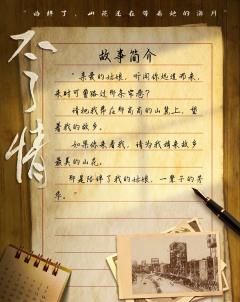 山花还在等着她的
不了情
故事简介
"亲爱的姑娘，听闻你远道而来，
来时可曾路过那条窄巷？
请把我葬在那高高的山上，望
着我的故乡。
如果你来看我，请为我捎来故乡
最美的山花。
那是陪伴了我的姑娘，一辈子的芳
华。"